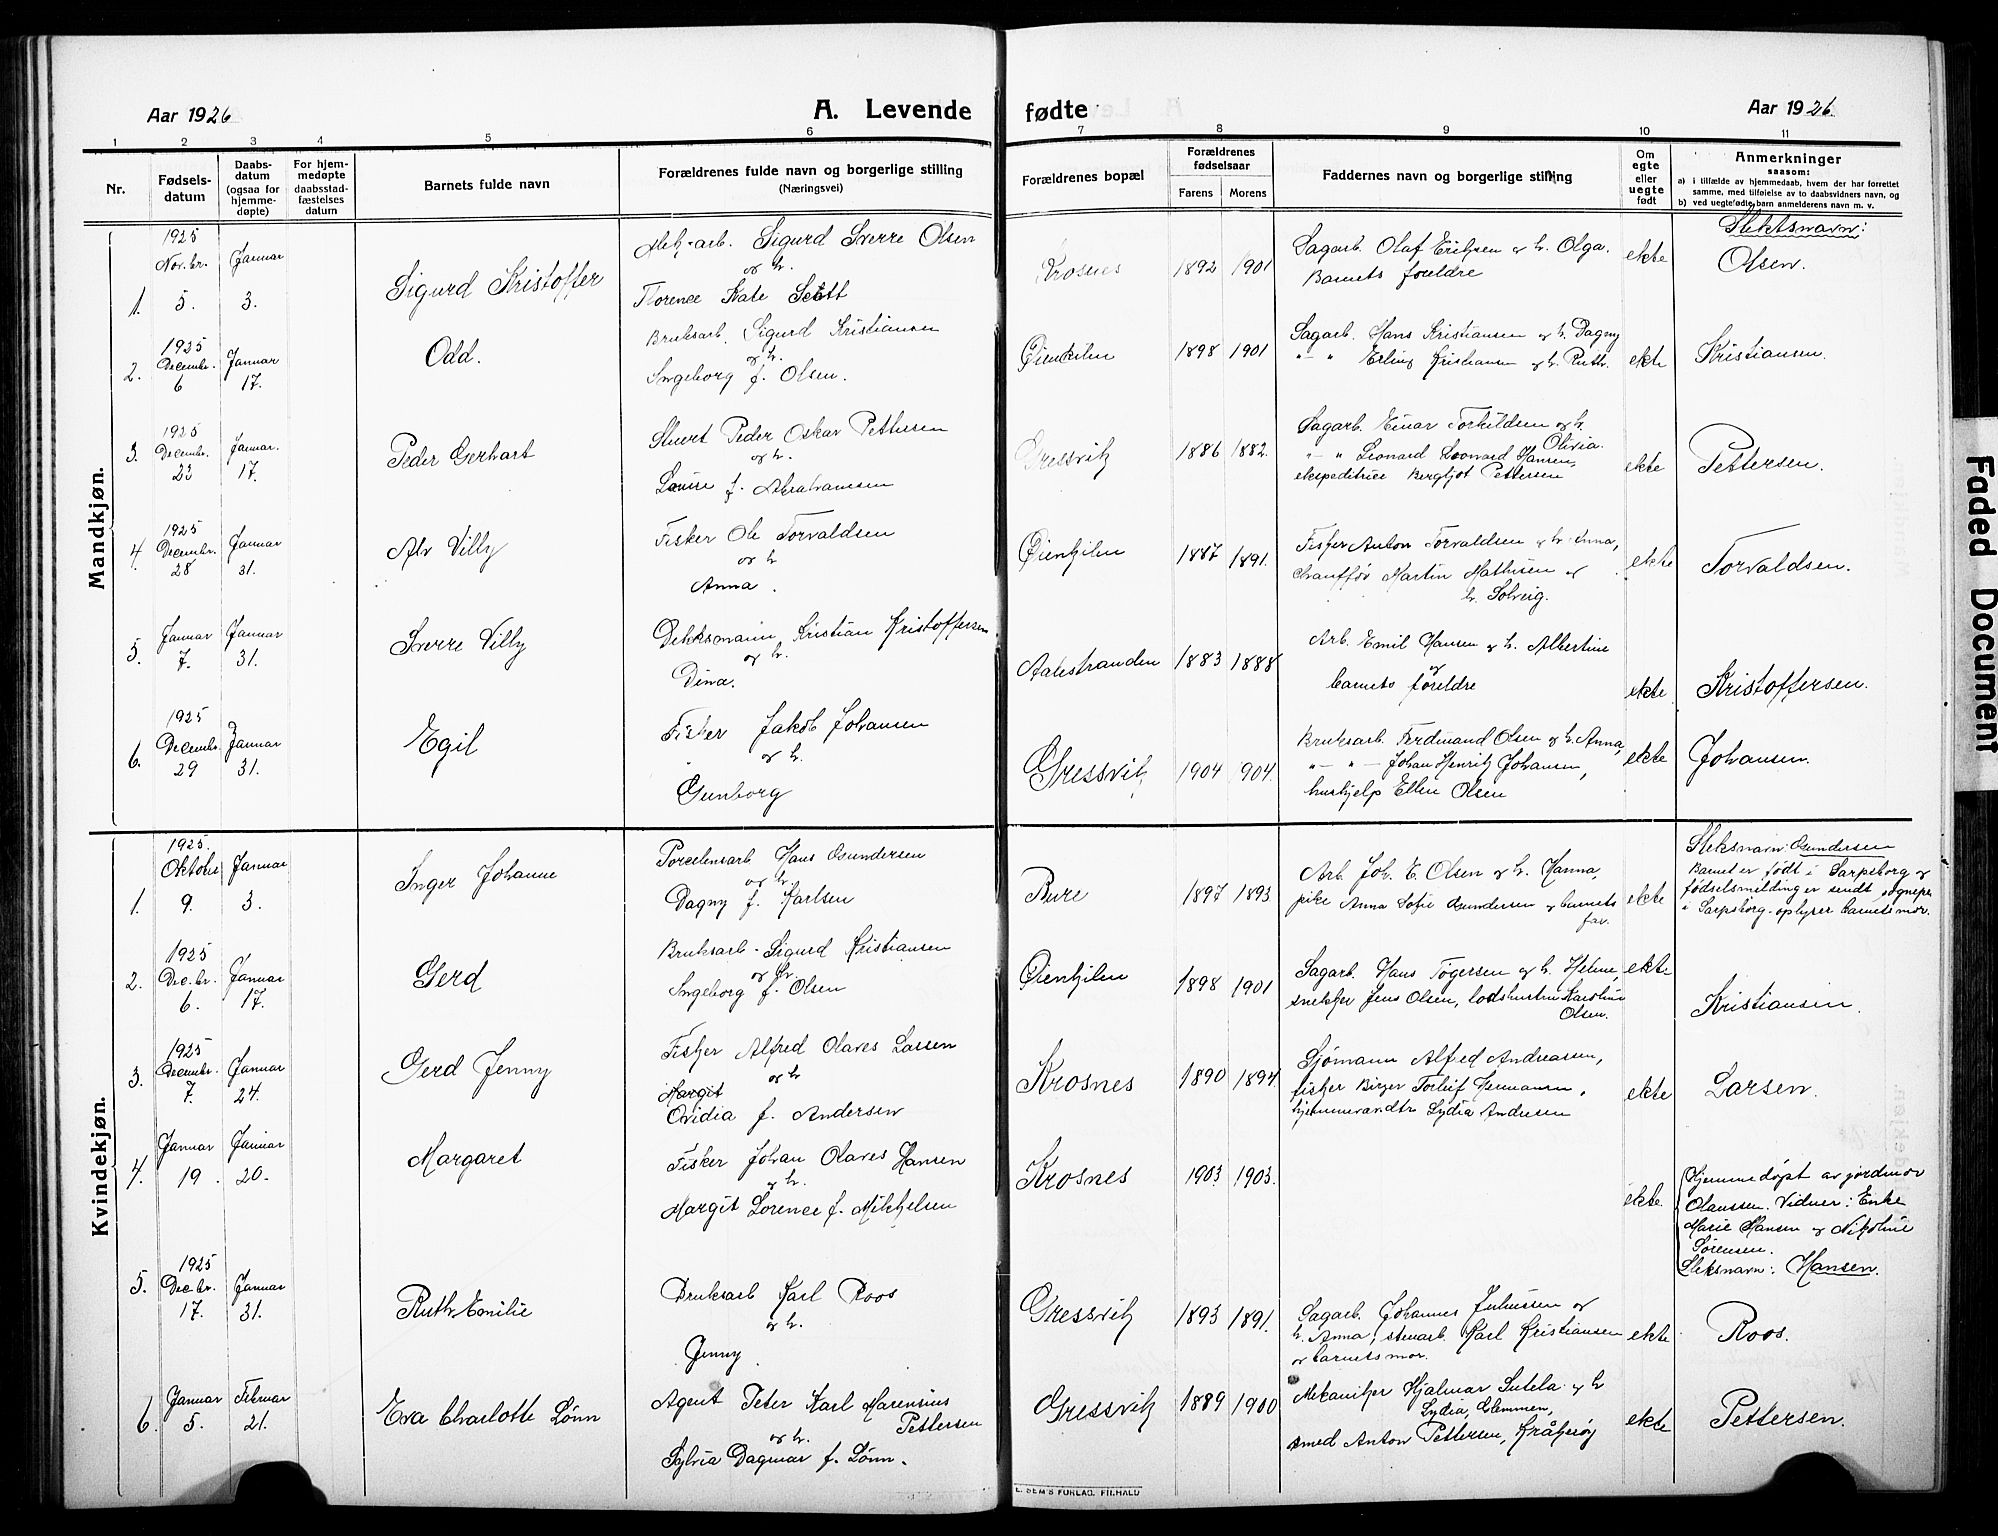 Aar 1926
A. Levende
fødte
Aar 1926.
1 2 3 4 5 6 7 8 9 10 11
Nr.
Fødsels-
datum
Daabs-
datum
(ogsaa for
hjemme-
døpte)
For hjem-
medøpte
daabsstad-
fæstelses
datum
Barnets fulde navn
Forældrenes fulde navn og borgerlige stilling
(Næringsvei)
Forældrenes bopæl
Forældrenes
fødselsaar
Farens Morens
Faddernes navn og borgerlige stilling
Om
egte
eller
uegte
født
Anmerkninger
saasom:
a) i tilfælde av hjemmedaab, hvem der har forrettet
samme, med tilføielse av to daabsvidners navn, og
b) ved uegtefødte barn anmelderens navn m. v.
Mandkjøn.
1925
Novbr. Januar
1. 5. 3.
Sigurd Kristoffer
Mek. arb. Sigurd Sverre Olsen
og h.
Florence Kate Scott
Krosnes 1892 1901
Sagarb. Olaf Eriksen og h. Olga.
Barnets foreldre
ekte
Slektsnavn:
Olsen.
1925
Decembr. Januar
2. 6 17.
Odd.
Bruksarb. Sigurd Kristiansen
og h.
Ingeborg f. Olsen.
Øienkilen 1898 1901
Sagarb. Hans Kristiansen og h. Dagny
" - " Erling Kristiansen og h. Ruth.
ekte
Kristiansen.
1925
Decembr. Januar.
3. 23 17.
Peder Gerhart
Stuert Peder Oskar Pettersen
og h.
Louise f. Abrahamsen
Gressvik 1886 1882.
Sagarb. Einar Torkildsen og h.
Olivia.
" - " Leonard Leonard Hansen,
ekspeditrice Bergljot Pettersen
ekte
Pettersen.
1925
Decembr. Januar
4. 28 31.
Alv Villy
Fisker Ole Torvaldsen
og h
Anna.
Øienkilen 1887 1891.
Fisker Anton Torvaldsen og h. Anna,
chauffør Martin Mathisen og
h. Solveig.
ekte
Torvaldsen.
Januar Januar
5. 7. 31.
Sverre Villy
Dekksmann Kristian Kristoffersen
og h.
Dina.
Aalestranden 1883 1888
Arb. Emil Hansen og h. Albertine
og
barnets foreldre
ekte
Kristoffersen.
1925
Decembr. Januar
6. 29 31.
Egil
Fisker Jakob Johansen
og h.
Gunborg
Gressvik 1904 1904.
Bruksarb. Ferdinand Olsen og h. Anna,
" - " - Johan Henrik Johansen,
hushjelp Ellen Olsen
ekte
Johansen.
Kvindekjøn.
1925.
Oktober Januar
1. 9. 3.
Inger Johanne
Porcelensarb Hans Gundersen
og h.
Dagny f. Karlsen
Bure 1897 1893
Arb. Joh. E. Olsen og h. Hanna,
pike Anna Sofie Gundersen og barnets
far.
ekte
Sleksnavn: Gundersen
Barnet er født i Sarpsborg og
fødselsmelding er sendt sognepr.
i Sarpsborg - oplyser barnets mor.
1925
Decbr. Januar
2. 6. 17.
Gerd
Bruksarb. Sigurd Kristiansen
og h.
Ingeborg f. Olsen
Øienkilen 1898 1901
Sagarb. Hans Togersen og h. Helene,
snekker Jens Olsen, loshustru Karoline
Olsen.
ekte
Kristiansen.
1925
Decembr. Januar
3. 7. 24.
Gerd Jenny
Fisker Alfred Olaves Larsen
og h
Margit
Ovidia f. Andersen
Krosnes 1890 1894.
Sjømann Alfred Andreassen,
fisker Birger Torleif Hermansen,
hjemmeværende Lydia Andresen
ekte
Larsen.
Januar Januar
4. 19. 20.
Margaret
Fisker Johan Olaves Hansen
og h.
Margit Lorence f. Mikkelsen
Krosnes 1903 1903.
ekte.
Hjemmedøpt av jordmor
Olaussen. Vidner: Enke
Marie Hansen og Nikoline
Sørensen.
Sleksnavn: Hansen.
1925
5. Decbr. Januar
17. 31.
Ruth Emilie
Bruksarb Karl Roos
og h.
Jenny
Gressvik 1893 1891.
Sagarb. Johannes Juliussen og
h. Anna, stenarb. Karl Kristiansen
og barnets mor.
ekte
Roos.
Januar Februar
6. 5. 21.
Eva Charlotte Lønn
Agent Peter Karl Marensius
Pettersen
og h.
Sylvia Dagmar f. Lønn.
Gressvik 1889 1900
Mekaniker Hjalmar Sutela og h
Lydia, Glemmen,
smed Anton Pettersen, Kråkerøy
ekte
Pettersen.
E. SEM'S FORLAG, FR.HALD
Faded Document